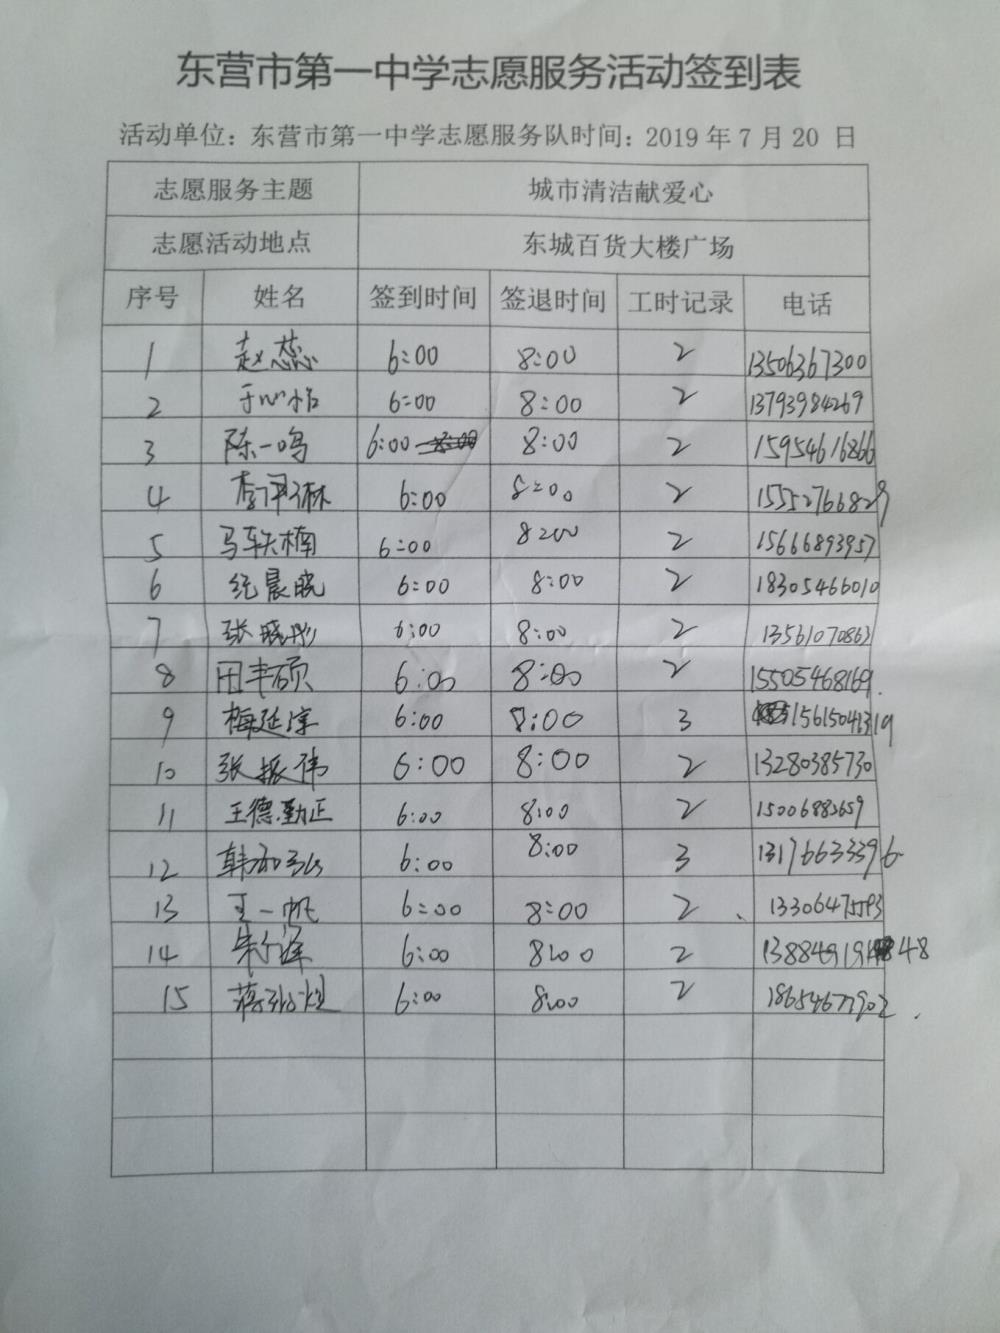 东营市第一中学志愿服务活动签到表
活动单位：东营市第一中学志愿服务队时间：2019 年 7 月 20 日
志愿服务主题 城市清洁献爱心
志愿活动地点 东城百货大楼广场
序号 姓名 签到时间 签退时间 工时记录 电话
1 赵蕊 6:00 8:00 2 13506367300
2 于心怡 6:00 8:00 2 13793984269
3 陈一鸣 6:00 8:00 2 15954616866
4 6:00 8:00 2 15552766829
5 马轶楠 6:00 8:00 2 15666893957
6 纪晨晓 6:00 8:00 2 18305466010
7 张晓彤 6:00 8:00 2 13561070863
8 田丰硕 6:00 8:00 2 15505468169
9 梅延淳 6:00 8:00 3
10 张振伟 6:00 8:00 2 13280385730
11 王德勤正 6:00 8:00 2 15006883659
12 6:00 8:00 3 13176633396
13 王一帆 6:00 8:00 2 13306475593
14 6:00 8:00 2
15 6:00 8:00 2 18654677902